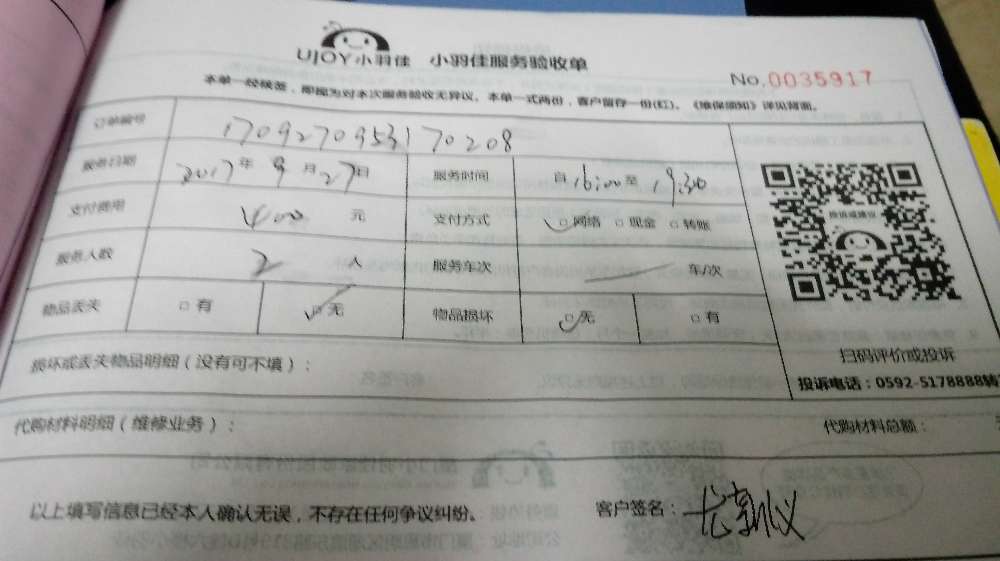 UJOY小羽佳 小羽佳服务验收单
No.0035917
本单一经核签，即视为对本次服务验收无异议。本单一式两份，客户留存一份(红)。《维保须知》详见背面。
订单编号 1709270953170208
服务日期 2017年9月27日 服务时间 自16:00至19:30
支付费用 400元 支付方式 □网络 □现金 □转账
服务人数 2人 服务车次 车/次
物品丢失 □有 □无 物品损坏 □无 □有
损坏或丢失物品明细（没有可不填）：
扫码评价或投诉
投诉电话：0592-5178888转
代购材料明细（维修业务）： 代购材料总额：
以上填写信息已经本人确认无误，不存在任何争议纠纷。 客户签名：